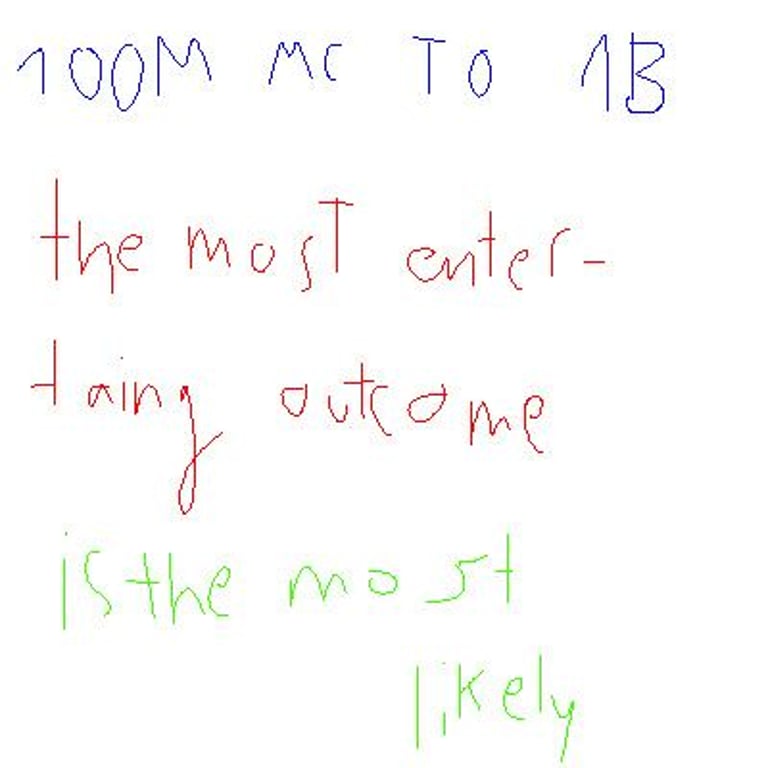 100M MC TO 1B
the mosT enter-
taing outcome
is the most
likely